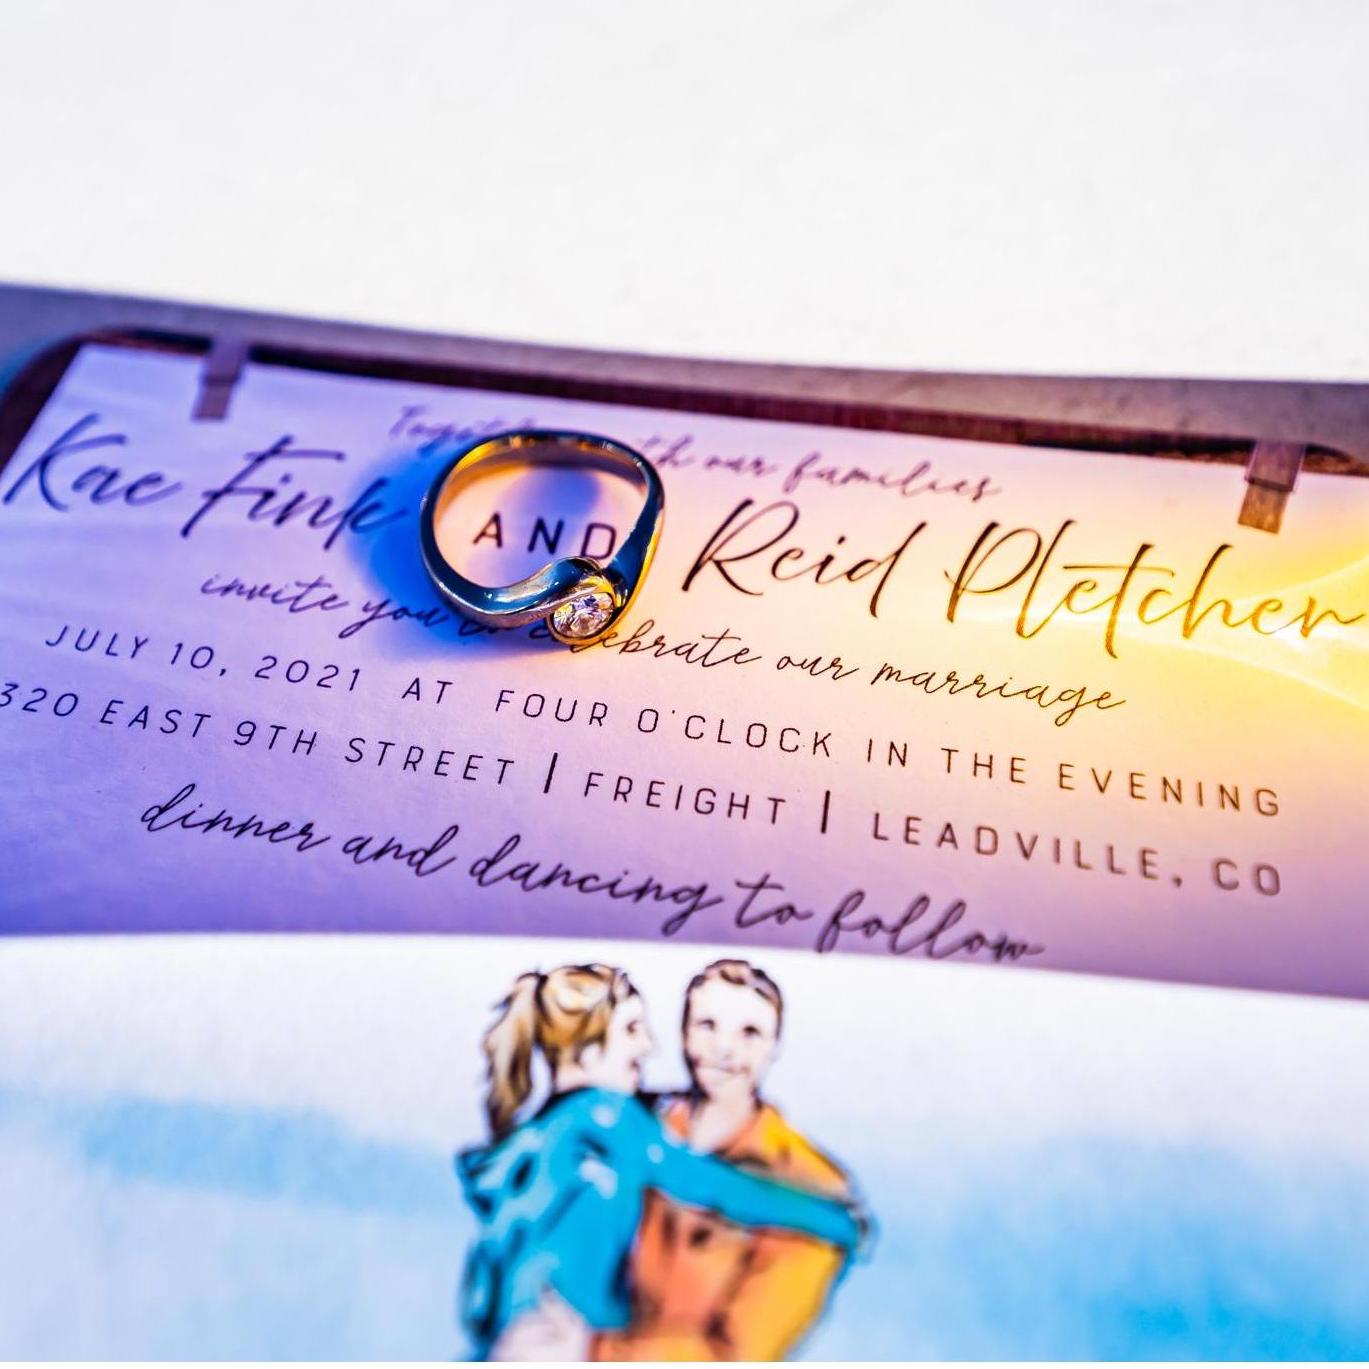 Together with our families
Kae Fink AND Reid Pletcher
invite you to celebrate our marriage
JULY 10, 2021 AT FOUR O'CLOCK IN THE EVENING
320 EAST 9TH STREET | FREIGHT | LEADVILLE, CO
dinner and dancing to follow